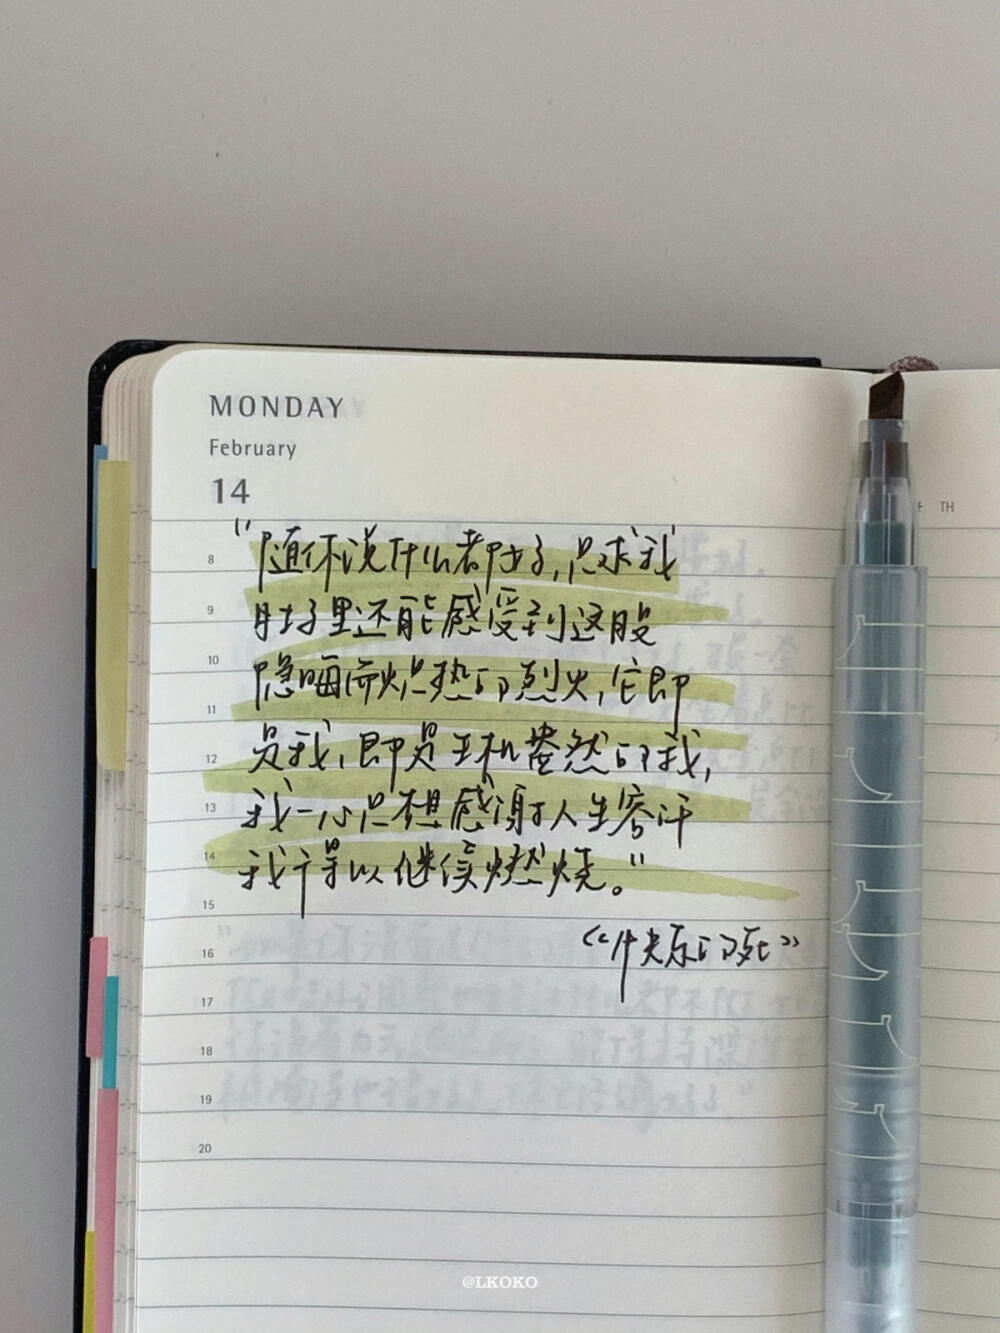 MONDAY
February
14
"随你说什么都好,只求我
8
肚子里还能感受到这股
9
隐晦而炽热的烈火,它即
10
11
是我,即是生机盎然的我,
12
我一心只想感谢人生容许
13
我得以继续燃烧。"
14
15
《快乐的死》
16
17
18
19
20
TH
@LKOKO